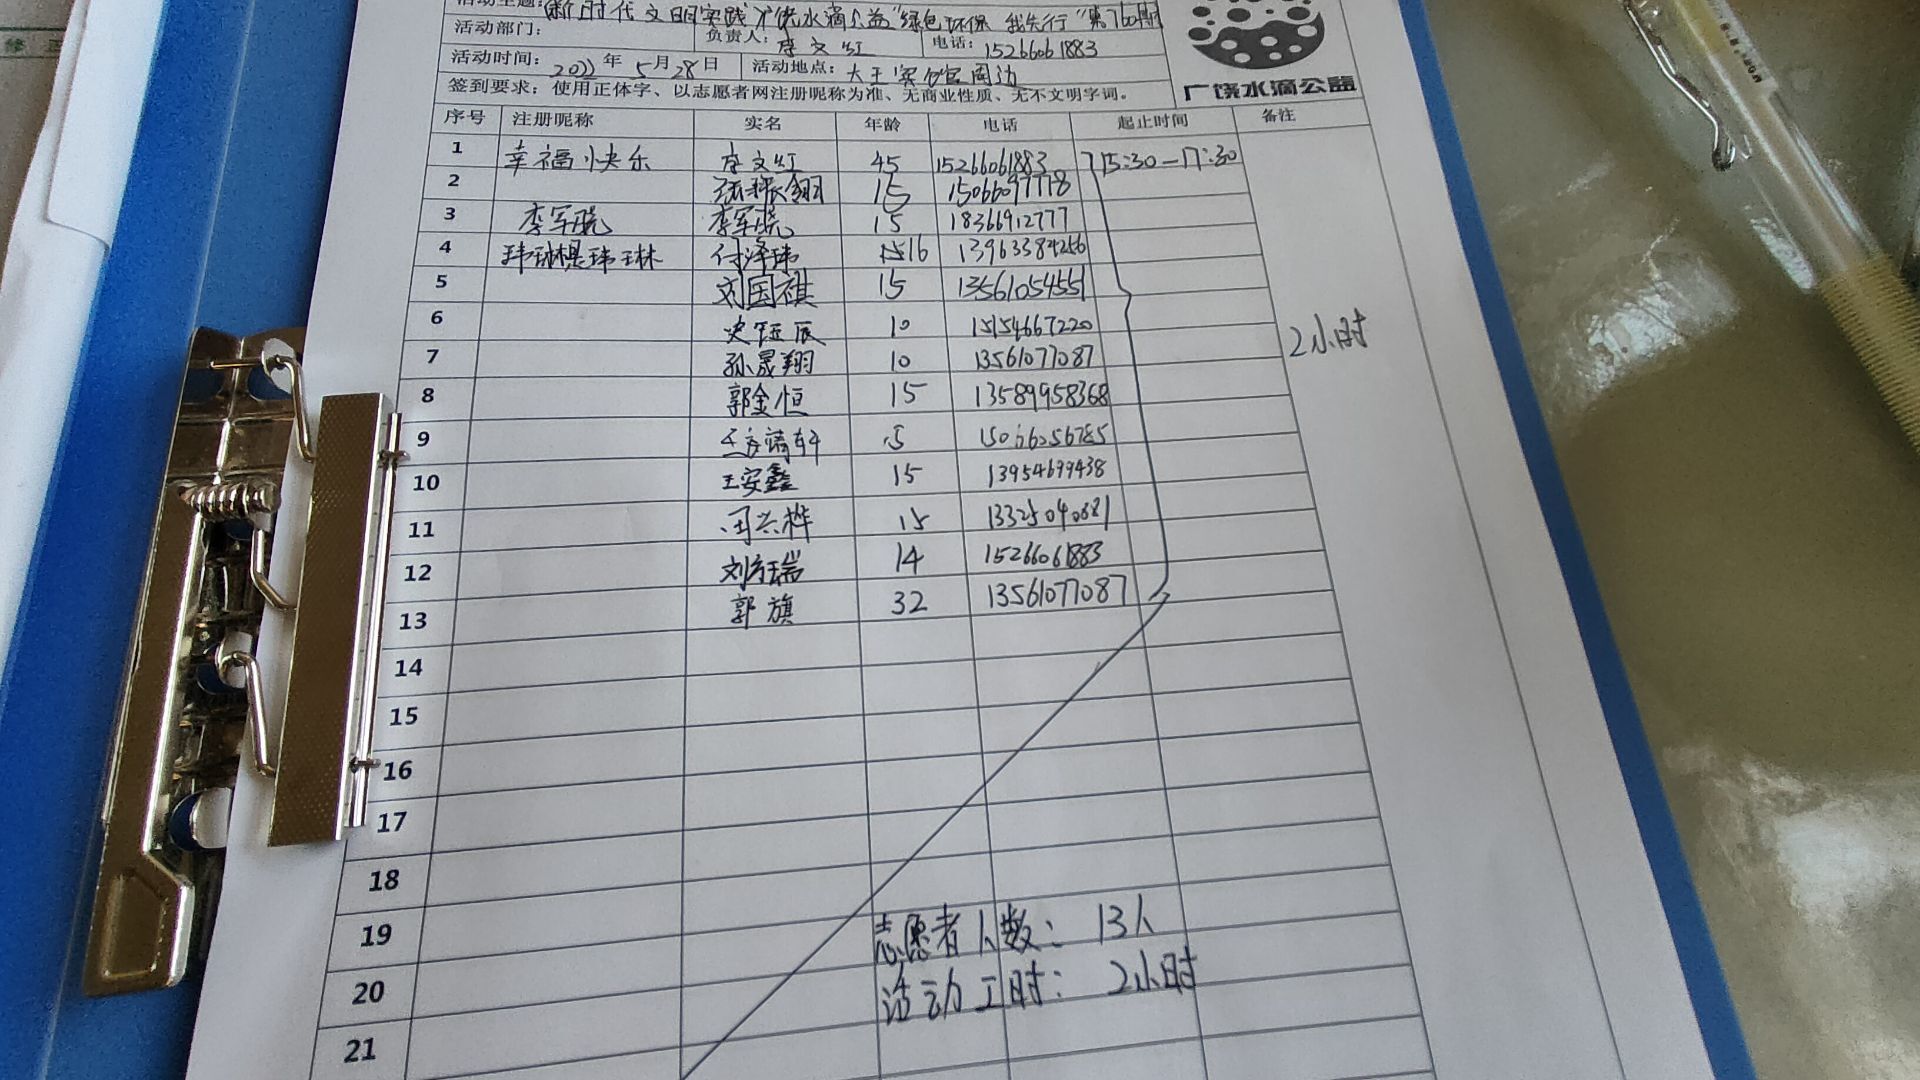 活动主题: 新时代文明实践 广饶水滴公益"绿色环保 我先行"第760期
活动部门: 负责人: 李文红 电话: 15266061883
活动时间: 2022年5月28日 活动地点: 大王宾馆周边
签到要求: 使用正体字、以志愿者网注册昵称为准、无商业性质、无不文明字词。
广饶水滴公益
序号 注册昵称 实名 年龄 电话 起止时间 备注
1 幸福快乐 李文红 45 15266061883 15:30-17:30
2 15 15066097778
3 李军晓 李军晓 15 18366912777
4 玮琳是玮琳 付泽玮 16 13963384266
5 刘国祺 15 13561054551
6 史钰辰 10 15154667220
7 孙晟翔 10 13561077087
2小时
8 郭金恒 15 13589958368
9 15066256785
10 王安鑫 15 13954699438
11 周兴桦 15 13325040681
12 刘方瑞 14 15266061883
13 郭旗 32 13561077087
14
15
16
17
18
19 志愿者人数: 13人
20 活动工时: 2小时
21